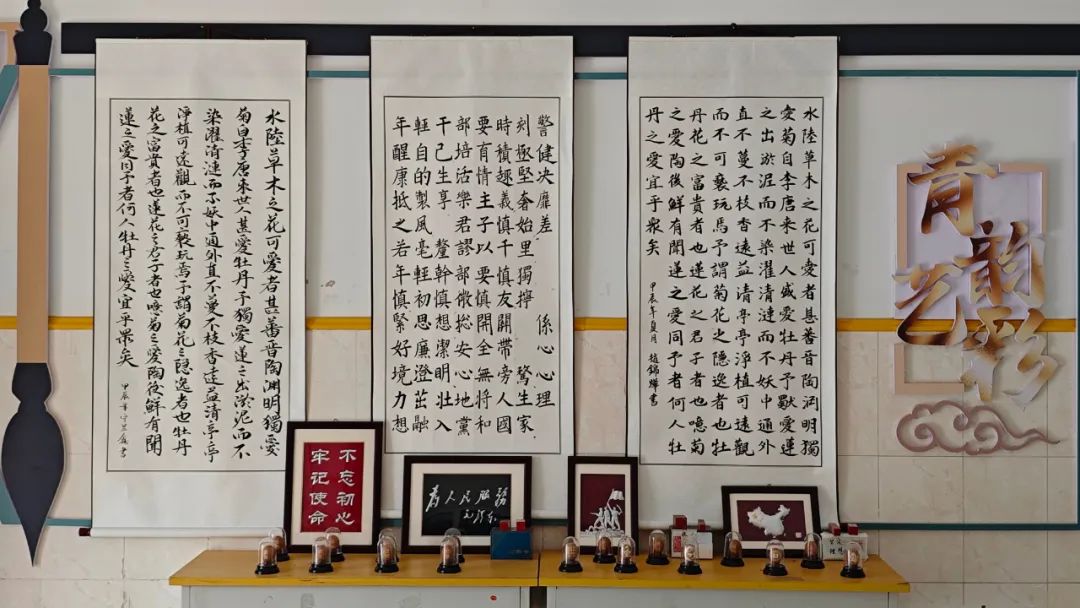 水陸草木之花可愛者甚蕃晋陶渊明獨愛
菊自李唐来世人甚愛牡丹予獨愛蓮之出淤泥而不
染濯清漣而不妖中通外直不蔓不枝香遠益清亭亭
淨植可遠觀而不可褻玩焉予謂菊花之隱逸者也牡丹
花之富貴者也蓮花之君子者也噫菊之愛陶後鮮有聞
蓮之愛同予者何人牡丹之愛宜乎眾矣
警健决靡差 係心心理
刻極堅奢始里獨擰 驚生家
時積趣義慎千慎友關帶旁人國
要有情主子以要慎開全無將和
部培活樂君謬部微総安心地黨
干己生享 釐幹慎想潔明壯入
輕自的製風毫輕初思廉澄茁融
年醒康抵之若年慎緊好境力想
水陸草木之花可愛者甚蕃晉陶渊明獨
愛菊自李唐来世人盛愛牡丹予獨愛蓮
之出淤泥而不染濯清漣而不妖中通外
直不蔓不枝香遠益清亭亭淨植可遠觀
而不可褻玩焉予謂菊花之隱逸者也牡
丹花之富貴者也蓮花之君子者也噫菊
之愛陶後鮮有聞蓮之愛同予者何人牡
丹之愛宜乎衆矣
甲辰年夏月 趙錦輝書
青韻艺彩
不忘初心
牢记使命
为人民服务
毛泽东